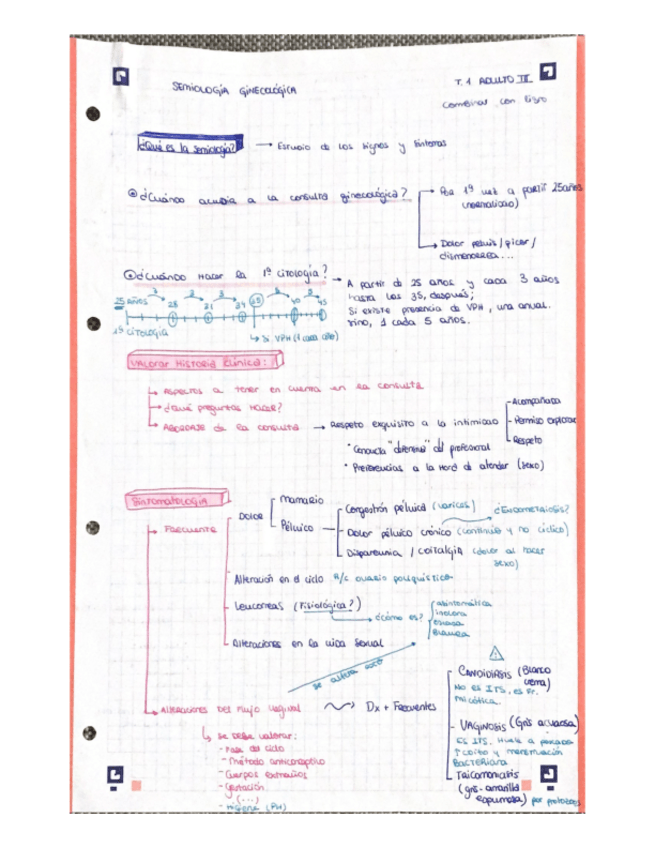 SEMIOLOGÍA GINECOLÓGICA
T. 1 ADULTO III
Combinar con libro
¿Qué es la semiología? → Estudio de los signos y síntomas
¿Cuándo acudir a la consulta ginecológica?
Por 1ª vez a partir 25 años
(normalizado)
Dolor pélvis / picor /
dismenorrea...
¿Cuándo hacer la 1ª citología?
A partir de 25 años y cada 3 años
hasta los 35, después;
Si existe presencia de VPH, una anual.
sino, 1 cada 5 años.
3 3 3 5 5
25 años 28 31 34 35 40 45
1ª CITOLOGÍA
↳ Si VPH (1 cada año)
Valorar Historia Clínica:
Aspectos a tener en cuenta en la consulta
¿Qué preguntas hacer?
Abordaje de la consulta → Respeto exquisito a la intimidad
- Acompañada
- Permiso explorar
- Respeto
• Conducta del profesional
• Preferencias a la hora de atender (sexo)
Sintomatología
Frecuente
Dolor
Mamario
Pélvico
Congestión pélvica (varices)
¿Endometriosis?
Dolor pélvico crónico (continuo y no cíclico)
Dispareunia / coitalgia (dolor al hacer
sexo)
Alteración en el ciclo R/c ovario poliquístico
Leucorreas (Fisiológica?)
→ ¿cómo es?
asintomática
inodora
escasa
blanca
Alteraciones en la vida sexual
se altera
Alteraciones del flujo vaginal
Dx + Frecuentes
CANDIDIASIS (Blanco
No es ITS, es Fr.
micótica.
VAGINOSIS (Gris acuosa)
Es ITS. Huele a pescado
↑ coito y menstruación
BACTERIANA
Tricomoniasis
(gris-amarilla
espumosa) por protozoos
↳ se debe valorar:
- Fase del ciclo
- Método anticonceptivo
- Cuerpos extraños
- Gestación
(...)
- Higiene (PH)